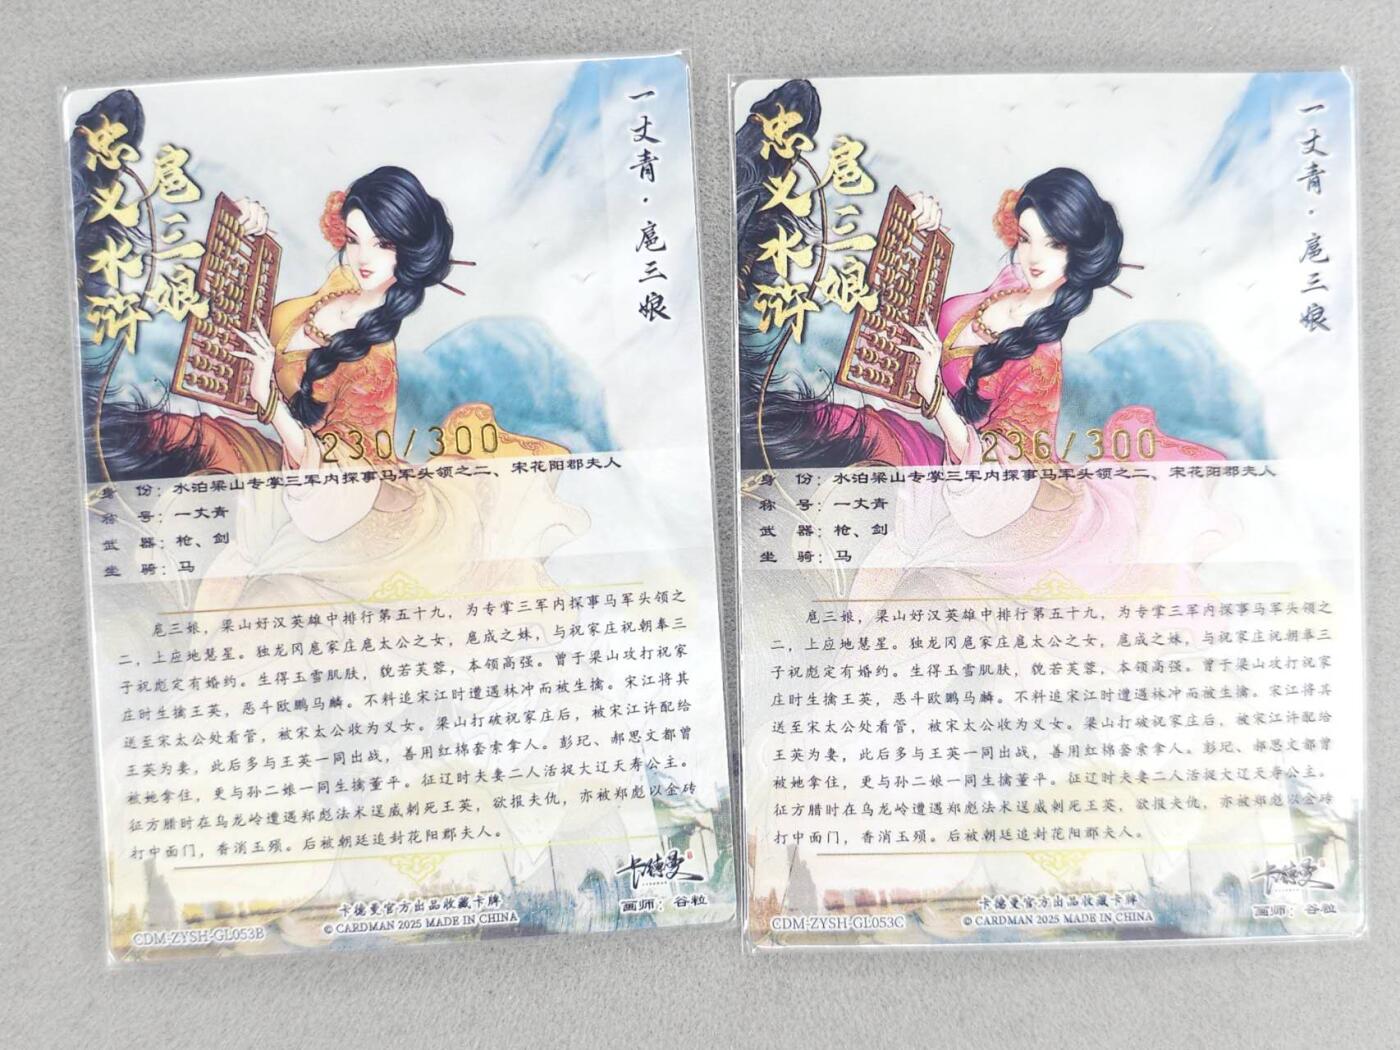 忠义水浒
扈三娘
一丈青·扈三娘
230/300
身 份：水泊梁山专掌三军内探事马军头领之二、宋花阳郡夫人
称 号：一丈青
武 器：枪、剑
坐 骑：马
扈三娘，梁山好汉英雄中排行第五十九，为专掌三军内探事马军头领之
二，上应地慧星。独龙冈扈家庄扈太公之女，扈成之妹，与祝家庄祝朝奉三
子祝彪定有婚约。生得玉雪肌肤，貌若芙蓉，本领高强。曾于梁山攻打祝家
庄时生擒王英，恶斗欧鹏马麟。不料追宋江时遭遇林冲而被生擒。宋江将其
送至宋太公处看管，被宋太公收为义女。梁山打破祝家庄后，被宋江许配给
王英为妻，此后多与王英一同出战，善用红棉套索拿人。彭玘、郝思文都曾
被她拿住，更与孙二娘一同生擒董平。征辽时夫妻二人活捉大辽天寿公主。
征方腊时在乌龙岭遭遇郑彪法术逞威刺死王英，欲报夫仇，亦被郑彪以金砖
打中面门，香消玉殒。后被朝廷追封花阳郡夫人。
卡德曼
卡德曼官方出品收藏卡牌
画师：谷粒
© CARDMAN 2025 MADE IN CHINA
CDM-ZYSH-GL053B
忠义水浒
扈三娘
一丈青·扈三娘
236/300
身 份：水泊梁山专掌三军内探事马军头领之二、宋花阳郡夫人
称 号：一丈青
武 器：枪、剑
坐 骑：马
扈三娘，梁山好汉英雄中排行第五十九，为专掌三军内探事马军头领之
二，上应地慧星。独龙冈扈家庄扈太公之女，扈成之妹，与祝家庄祝朝奉三
子祝彪定有婚约。生得玉雪肌肤，貌若芙蓉，本领高强。曾于梁山攻打祝家
庄时生擒王英，恶斗欧鹏马麟。不料追宋江时遭遇林冲而被生擒。宋江将其
送至宋太公处看管，被宋太公收为义女。梁山打破祝家庄后，被宋江许配给
王英为妻，此后多与王英一同出战，善用红棉套索拿人。彭玘、郝思文都曾
被她拿住，更与孙二娘一同生擒董平。征辽时夫妻二人活捉大辽天寿公主。
征方腊时在乌龙岭遭遇郑彪法术逞威刺死王英，欲报夫仇，亦被郑彪以金砖
打中面门，香消玉殒。后被朝廷追封花阳郡夫人。
卡德曼
卡德曼官方出品收藏卡牌
画师：谷粒
© CARDMAN 2025 MADE IN CHINA
CDM-ZYSH-GL053C